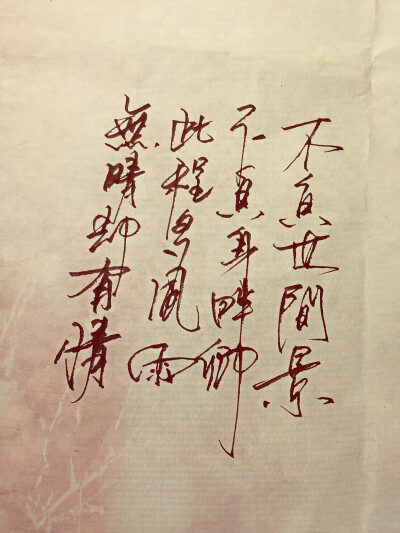 不負世間景
不負身畔卿
此程多風雨
無晴却有情